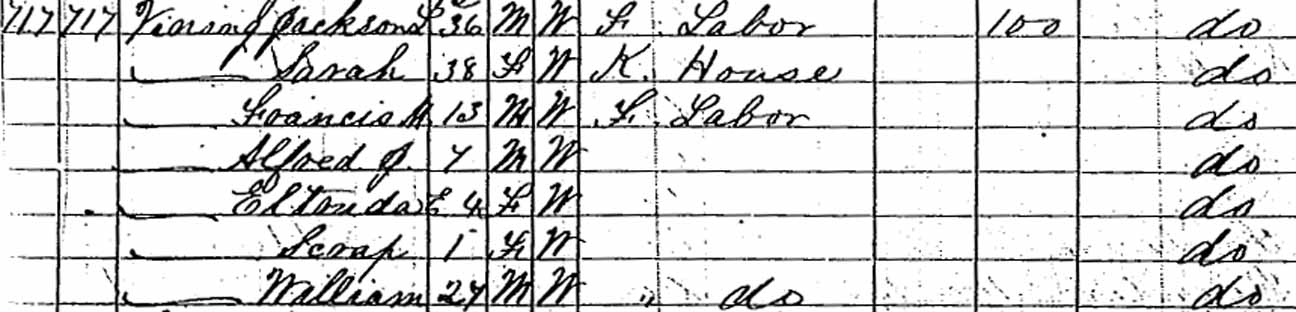 717 717 Vining Jackson L 36 M W F. Labor 100 do
Sarah 38 F W K. House do
Francis M 13 M W F. Labor do
Alfred J. 7 M W do
Eltorida E 4 F W do
Scrap 1 F W do
William 27 M W " do do